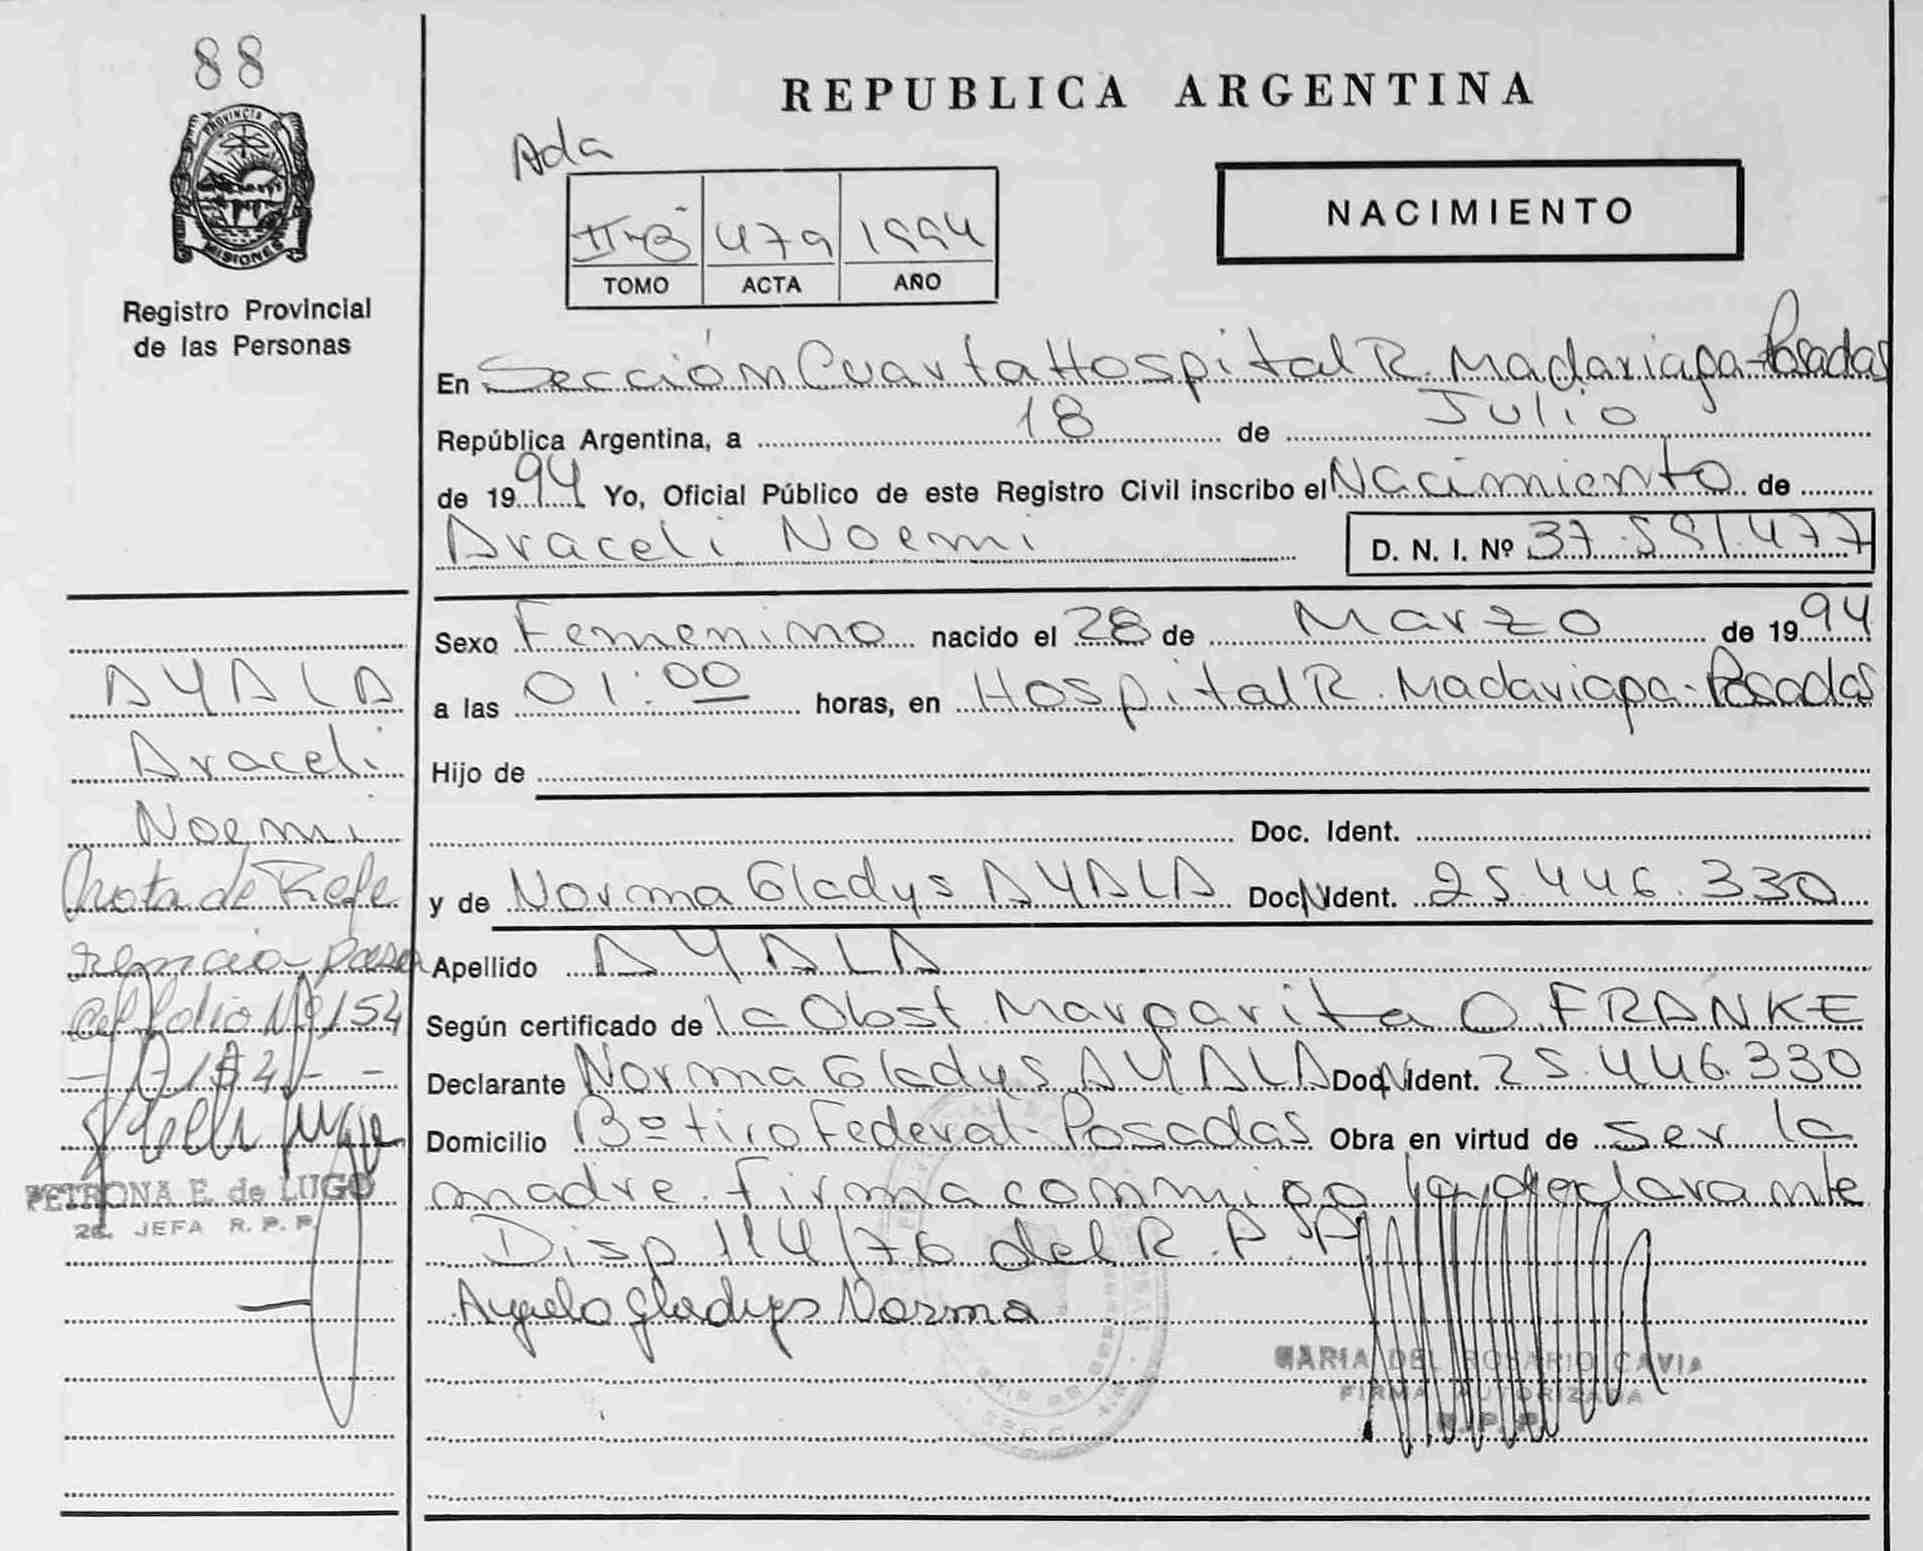 88
PROVINCIA DE
MISIONES
Registro Provincial
de las Personas
REPUBLICA ARGENTINA
Ada
NACIMIENTO
II-B 479 1994
TOMO ACTA AÑO
En Sección Cuarta Hospital R. Madariaga-Posadas
República Argentina, a 18 de Julio
de 1994 Yo, Oficial Público de este Registro Civil inscribo el Nacimiento de
Araceli Noemi D. N. I. Nº 37.591.477
Sexo Femenino nacido el 28 de Marzo de 1994
a las 01:00 horas, en Hospital R. Madariaga-Posadas
Hijo de
Doc. Ident.
y de Norma Gladys AYALA Doc. Ident. 25.446.330
Apellido AYALA
Según certificado de la Obst. Margarita O. FRANKE
Declarante Norma Gladys AYALA Doc. Ident. 25.446.330
Domicilio Bº tiro Federal-Posadas Obra en virtud de ser la
madre. Firma conmigo la declarante
Disp 114/76 del R.P.P.
Ayala Gladys Norma
MARIA DEL ROSARIO CAVIA
FIRMA AUTORIZADA
R. P. P.
AYALA
Araceli
Noemi
Nota de Refe
rencia-pasa
al folio Nº 154
-154- -
PETRONA E. de LUGO
2da. JEFA R. P. P.